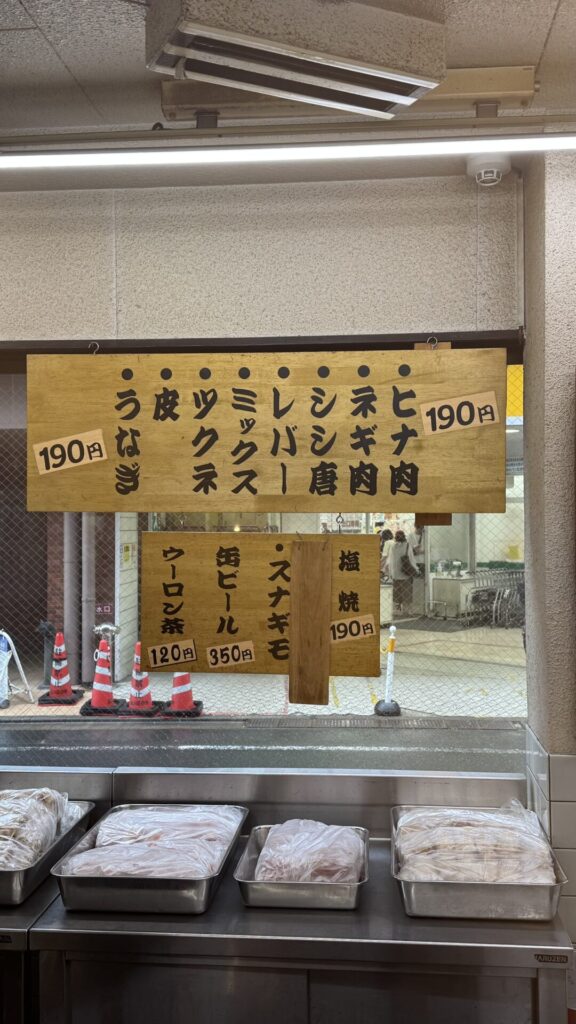 190円
ヒナ肉
ネギ肉
シシ唐
レバー
ミックス
ツクネ
皮
うなぎ
190円
塩焼
190円
スナギモ
缶ビール
350円
ウーロン茶
120円
水口
MARUZEN